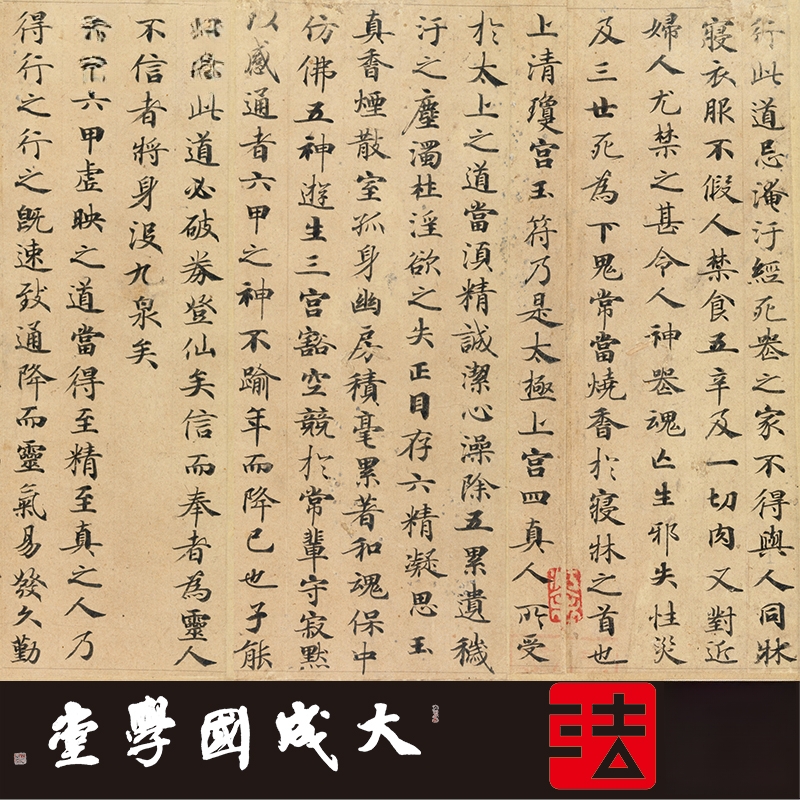 行此道忌淹汙經死喪之家不得與人同牀
寢衣服不假人禁食五辛及一切肉又對近
婦人尤禁之甚令人神喪魂亡生邪失性災
及三世死為下鬼常當燒香於寢牀之首也
上清瓊宮玉符乃是太極上宮四真人所受
於太上之道當須精誠潔心澡除五累遺穢
汙之塵濁杜淫欲之失正目存六精凝思玉
真香煙散室孤身幽房積毫累著和魂保中
仿佛五神遊生三宮豁空競於常輩守寂默
以感通者六甲之神不踰年而降已也子能
此道必破券登仙矣信而奉者為靈人
不信者將身沒九泉矣
六甲虛映之道當得至精至真之人乃
得行之行之既速致通降而靈氣易發久勤
大成國學堂
法